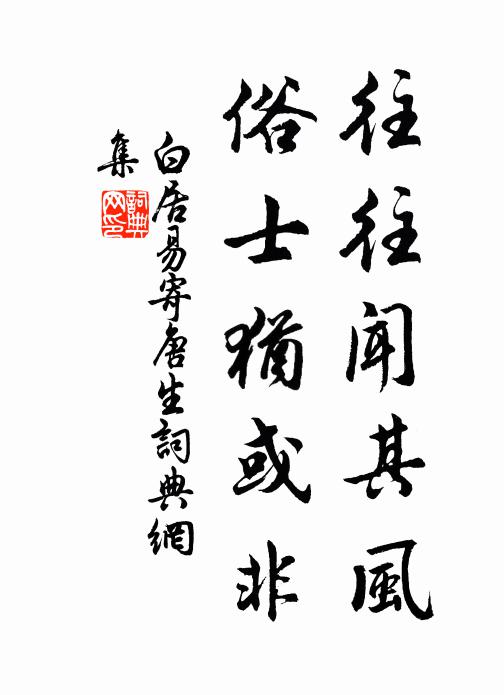 往往聞其風
俗士猶或非
白居易寄唐生詞典網
集
詞典
网印